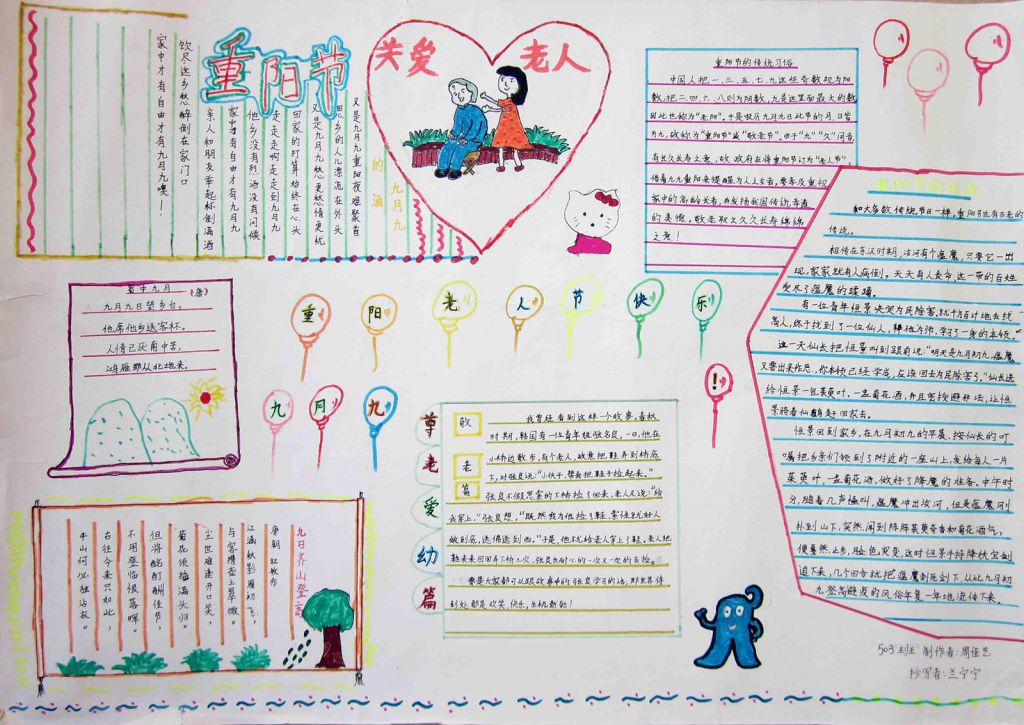 重阳节
关爱老人
九月九
的酒
又是九月九重阳夜难聚首
思乡的人儿漂流在外头
又是九月九愁更愁情更忧
回家的打算始终在心头
走走走啊走走走到九月九
他乡没有烈酒没有问候
家中才有自由才有九月九
亲人和朋友举起杯倒满酒
饮尽这乡愁醉倒在家门口
家中才有自由才有九月九噢——！
重阳节的传统习俗
中国人把一、三、五、七、九这些奇数视为阳
数，把二、四、六、八则为阴数，九是这里面最大的数
因此也称为"老阳"。于是农历九月九日此节的月、日皆
为九，故称为"重阳节"或"敬老节"。由于"九""久"同音
有长久长寿之意，故政府在将重阳节订为"老人节"
借着九九重阳来提醒为人子女者，要孝及重视
家中的高龄长者，并发扬我国传统孝道
的美德，敬老取久久久长寿绵绵
之意！
和大多数传统节日一样，重阳节也有古老的
传说。
相传在东汉时期，汝河有个瘟魔，只要它一出
现，家家就有人病倒。天天有人丧命，这一带的百姓
受尽了瘟魔的蹂躏。
有一位青年恒景决定为民除害，就千方百计地去找
高人，终于找到了一位仙人，拜他为师，学了一身的本领。
这一天仙长把恒景叫到跟前说："明天是九月初九，瘟魔
又要出来作恶，你本领已经学成，应该回去为民除害了。"仙长送
给恒景一包茱萸叶，一盅菊花酒，并且密授避邪法，让恒
景骑着仙鹤赶回家去。
恒景回到家乡，在九月初九的早晨，按仙长的叮
嘱把乡亲们领到了附近的一座山上，发给每人一片
茱萸叶，一盅菊花酒，做好了降魔的准备。中午时
分，随着几声怪叫，瘟魔冲出汝河，但是瘟魔刚
扑到山下，突然闻到阵阵茱萸奇香和菊花酒气，
便戛然止步，脸色突变，这时恒景手持降妖宝剑
追下来，几个回合就把瘟魔刺死剑下，从此九月初
九登高避疫的风俗年复一年地流传下来。
蜀中九月 (唐)
九月九日望乡台，
他席他乡送客杯。
人情已厌南中苦，
鸿雁那从北地来。
重阳老人节快乐！
九月九
尊老爱幼篇
敬
老
篇
我曾经看到这样一个故事，春秋
时期，韩国有一位青年姓张名良，一日，他在
小桥边散步，有个老人，故意把鞋弄到桥底
下，对张良说："小伙子，帮我把鞋子捡起来。"
张良不假思索的下桥捡了回来，老人又说："给
我穿上。"张良想，"既然我为他捡了鞋，索性就好人
做到底，送佛送到西。"于是，他木就给老人穿上了鞋，老人把
鞋来来回回弄下桥几次，张良也耐心的一次又一次的去捡。
要是大家都可以跟故事中的张良学习的话，那世界将
到处都是欢笑、快乐，生机勃勃！
九日齐山登高
唐朝 杜牧作
江涵秋影雁初飞，
与客携壶上翠微。
尘世难逢开口笑，
菊花须插满头归。
但将酩酊酬佳节，
不用登临恨落晖。
古往今来只如此，
牛山何必独沾衣。
503班 制作者：周佳艺
抄写者：兰宁宁